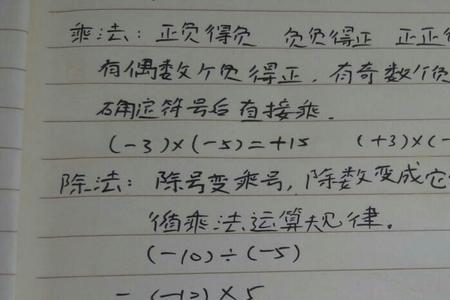 乘法：正负得负 负负得正 正正
有偶数个负得正，有奇数个负
确定符号后直接乘．
(-3)×(-5)=+15 (+3)×(-
除法：除号变乘号，除数变成它
循乘法运算规律。
(-10)÷(-5)
= (-10)×5